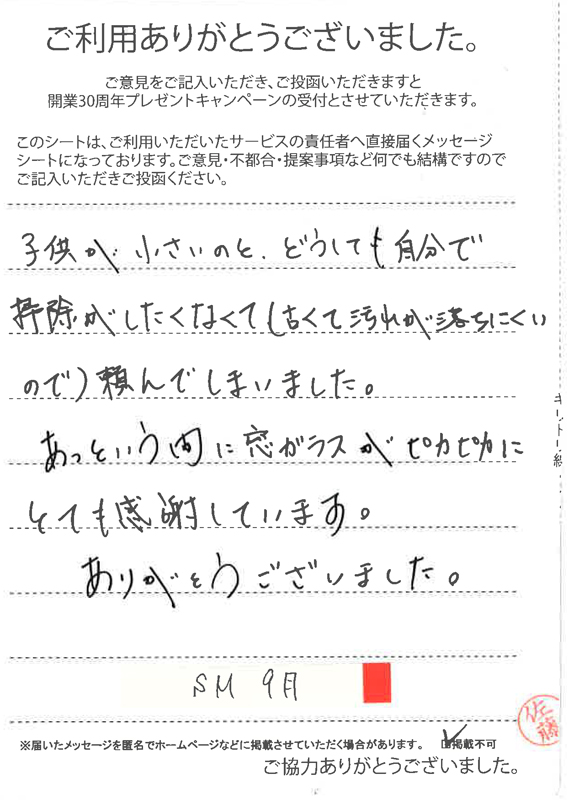 ご利用ありがとうございました。
ご意見をご記入いただき、ご投函いただきますと
開業30周年プレゼントキャンペーンの受付とさせていただきます。
このシートは、ご利用いただいたサービスの責任者へ直接届くメッセージ
シートになっております。ご意見・不都合・提案事項など何でも結構ですので
ご記入いただきご投函ください。
子供が小さいのと、どうしても自分で
掃除がしたくなくて(古くて汚れが落ちにくい
ので)頼んでしまいました。
あっという間に窓ガラスがピカピカに
とても感謝しています。
ありがとうございました。
SM 9月
佐藤
※届いたメッセージを匿名でホームページなどに掲載させていただく場合があります。 掲載不可
ご協力ありがとうございました。